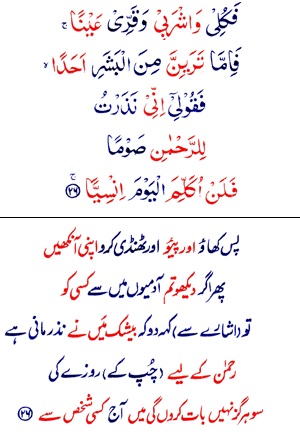 فَكُلِیْ وَاشْرَبِیْ وَقَرِّیْ عَیْنًا ۚ
فَاِمَّا تَرَیِنَّ مِنَ الْبَشَرِ اَحَدًا ۙ
فَقُوْلِیْۤ اِنِّیْ نَذَرْتُ
لِلرَّحْمٰنِ صَوْمًا
فَلَنْ اُكَلِّمَ الْیَوْمَ اِنْسِیًّا ۚ ﴿۲۶﴾
پس کھاؤ اور پیئو اور ٹھنڈی کرو اپنی آنکھیں
پھر اگر دیکھو تم آدمیوں میں سے کسی کو
تو (اشارے سے) کہہ دو کہ بیشک میں نے نذر مانی ہے
رحمٰن کے لیے (چُپ کے) روزے کی
سو ہرگز نہیں بات کروں گی میں آج کسی شخص سے ﴿۲۶﴾